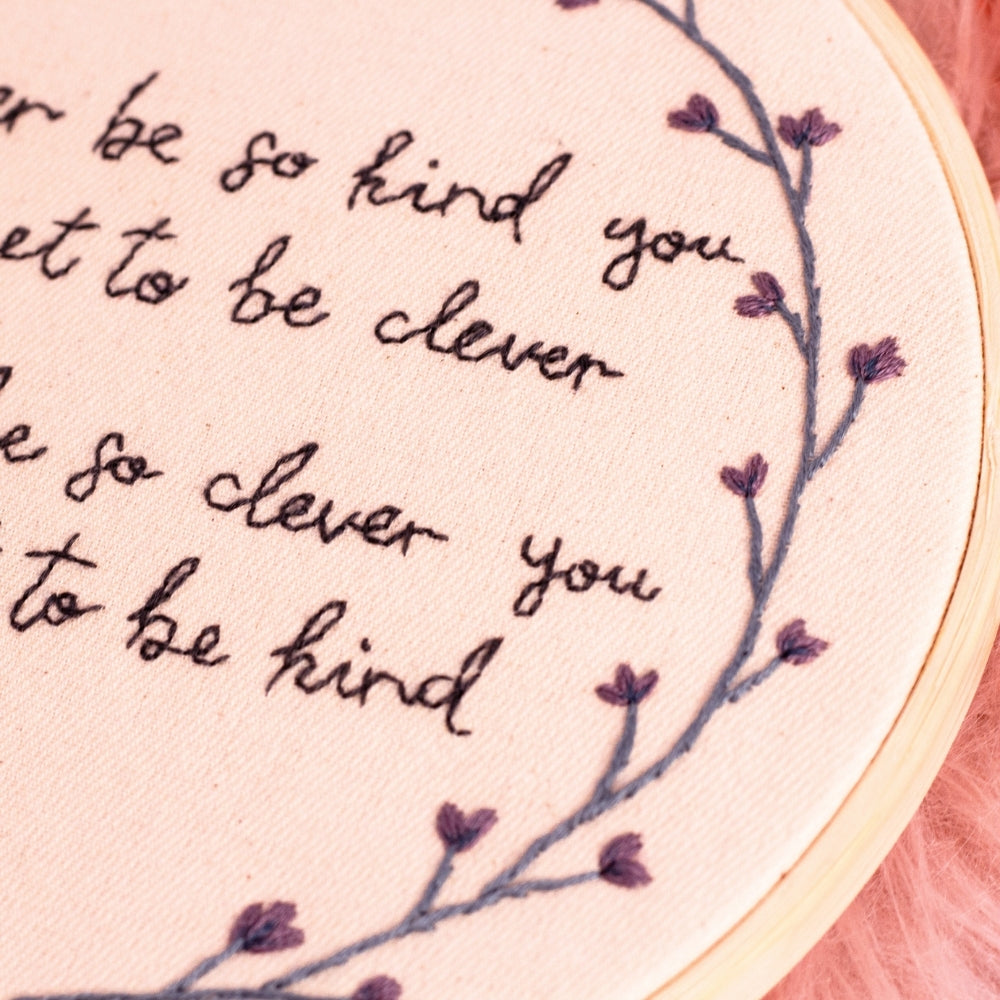 er be so kind you
et to be clever
e so clever you
to be kind